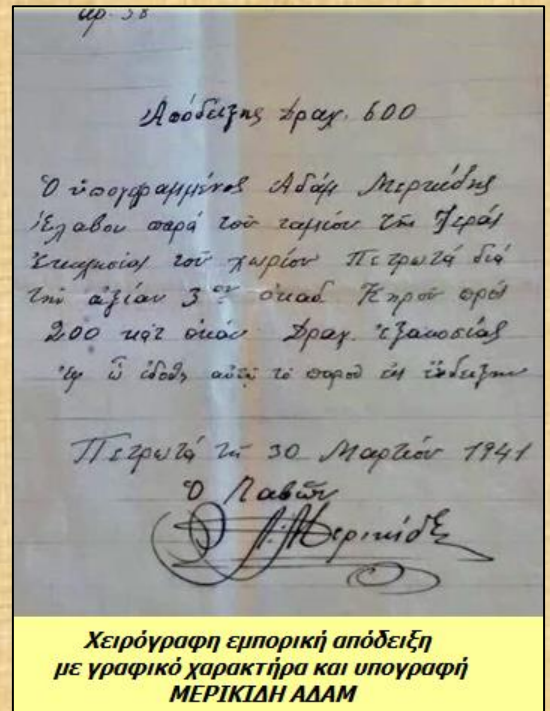 αρ. 38
Απόδειξης Δραχ. 600
Ὁ ὑπογεγραμμένος Αδάμ Μερικίδης
ἔλαβον παρά τοῦ ταμίου τῆς Ἱεράς
Ἐκκλησίας τοῦ χωρίου Πετρωτά διά
τήν ἀξίαν 3 ὀκάδ. Κηροῦ πρός
200 κατ ὀκάν Δραχ. ἑξακοσίας
ἐφ ᾧ ἐδόθη αὐτῷ τό παρόν εἰς ἔνδειξην
Πετρωτά τῇ 30 Μαρτίου 1941
Ὁ Λαβῶν
Α. Μερικίδης
Χειρόγραφη εμπορική απόδειξη
με γραφικό χαρακτήρα και υπογραφή
ΜΕΡΙΚΙΔΗ ΑΔΑΜ